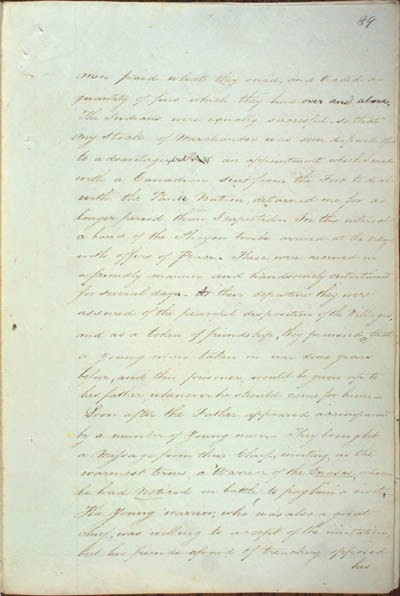 89
men paid what they owed, and traded a
quantity of furs which they had over and above.
The Indians were equally successful so that
my Stock of Merchandise was soon disposed of
to advantage, an appointment which I made
with a Canadian sent from the Fort to deal
with the Nation, detained me for a
longer period than I expected. In this interval
a band of the tribe arrived at the village
with offers of Peace. These were received in
a friendly manner and handsomely entertained
for several days. At their departure they were
assured of the peaceful disposition of the Villagers,
and as a token of friendship, they promised that
a Young man taken in war some years
before, and then prisoner, would be given up to
his father whenever he should come for him.
Soon after the Father appeared accompanied
by a number of Young men. They brought
a Message from their Chief, inviting, in the
warmest terms, a Warrior of the whom
he had Noticed in battle to pay him a visit.
The Young warrior, who was also a great
chief, was willing to accept of the invitation,
but his friends afraid of treachery opposed
his